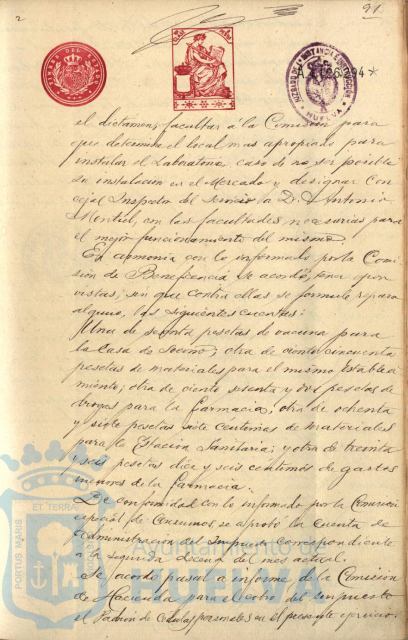 2
91
TIMBRE DEL ESTADO
A.4.666.294*
HUELVA
el dictamen; facultar á la Comisión para
que determine el local mas apropiado para
instalar el Laboratorio caso de no ser posible
su instalacion en el Mercado y designar Con
cejal Inspector del servicio a D. Antonio
con las facultades necesarias para
el mejor funcionamiento del mismo.
En armonia con lo informado por la Comi
sión de Beneficencia se acordó, sean apro
vistas, sin que contra ellas se formule reparo
alguno, las siguientes cuentas:
Una de sesenta pesetas de vacuna para
la Casa de Socorro; otra de ciento cincuenta
pesetas de materiales para el mismo Estableci
miento; otra de ciento setenta y dos pesetas de
drogas para la farmacia; otra de ochenta
y siete pesetas siete centimos de materiales
para la Estación Sanitaria; y otra de treinta
y seis pesetas diez y seis centimos de gastos
menores de la farmacia.
De conformidad con lo informado por la Comisión
especial de Consumos, se aprobó la cuenta de
administracion del Impuesto correspondiente
a la segunda decena del mes actual.
Se acordó pasar a informe de la Comisión
de Hacienda para el cobro del impuesto
el Padrón de Cedulas personales en el presente ejercicio.
PORTUS MARIS
ET TERRAE
Ayuntamiento de